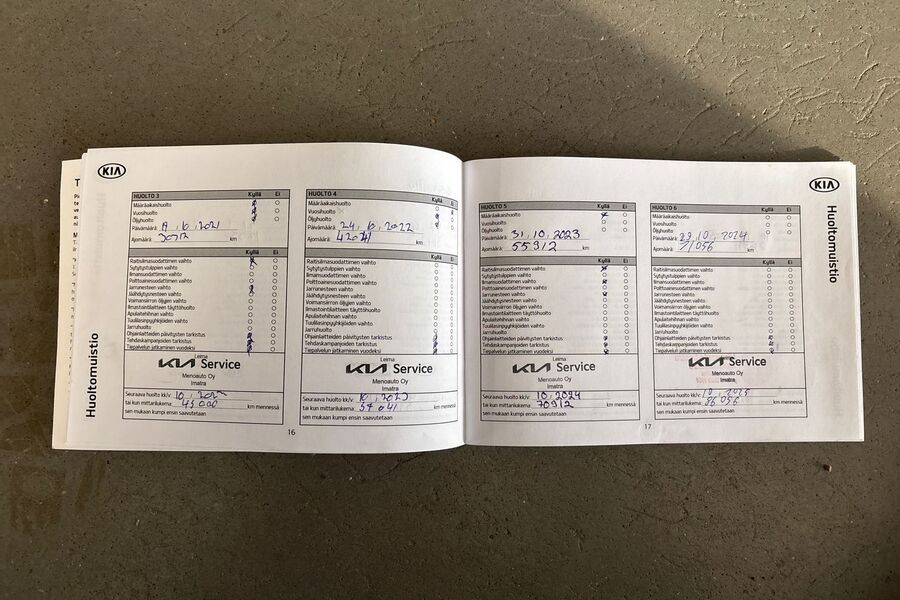 KIA
HUOLTO 3 Kyllä Ei
Määräaikaishuolto
Vuosihuolto
Öljyhuolto
Päivämäärä 10.2021
Ajomäärä: km
Kyllä Ei
Raitisilmasuodattimen vaihto
Sytytystulppien vaihto
Ilmansuodattimen vaihto
Polttoainesuodattimen vaihto
Jarrunesteen vaihto
Jäähdytysnesteen vaihto
Voimansiirron öljyjen vaihto
Ilmastointilaitteen täyttöhuolto
Apulaitehihnan vaihto
Tuulilasinpyyhkijöiden vaihto
Jarruhuolto
Ohjainlaitteiden päivitysten tarkistus
Tehdaskampanjoiden tarkistus
Tiepalvelun jatkaminen vuodeksi
Leima
KIA Service
Menoauto Oy
Imatra
Seuraava huolto kk/v. 10.
tai kun mittarilukema 45000 km mennessä
sen mukaan kumpi ensin saavutetaan
HUOLTO 4 Kyllä Ei
Määräaikaishuolto
Vuosihuolto
Öljyhuolto
Päivämäärä 24.10.2022
Ajomäärä: km
Kyllä Ei
Raitisilmasuodattimen vaihto
Sytytystulppien vaihto
Ilmansuodattimen vaihto
Polttoainesuodattimen vaihto
Jarrunesteen vaihto
Jäähdytysnesteen vaihto
Voimansiirron öljyjen vaihto
Ilmastointilaitteen täyttöhuolto
Apulaitehihnan vaihto
Tuulilasinpyyhkijöiden vaihto
Jarruhuolto
Ohjainlaitteiden päivitysten tarkistus
Tehdaskampanjoiden tarkistus
Tiepalvelun jatkaminen vuodeksi
Leima
KIA Service
Menoauto Oy
Imatra
Seuraava huolto kk/v. 10.2023
tai kun mittarilukema 57041 km mennessä
sen mukaan kumpi ensin saavutetaan
Huoltomuistio
16
KIA
HUOLTO 5 Kyllä Ei
Määräaikaishuolto
Vuosihuolto
Öljyhuolto
Päivämäärä 31.10.2023
Ajomäärä: 55912 km
Kyllä Ei
Raitisilmasuodattimen vaihto
Sytytystulppien vaihto
Ilmansuodattimen vaihto
Polttoainesuodattimen vaihto
Jarrunesteen vaihto
Jäähdytysnesteen vaihto
Voimansiirron öljyjen vaihto
Ilmastointilaitteen täyttöhuolto
Apulaitehihnan vaihto
Tuulilasinpyyhkijöiden vaihto
Jarruhuolto
Ohjainlaitteiden päivitysten tarkistus
Tehdaskampanjoiden tarkistus
Tiepalvelun jatkaminen vuodeksi
Leima
KIA Service
Menoauto Oy
Imatra
Seuraava huolto kk/v. 10.2024
tai kun mittarilukema 70912 km mennessä
sen mukaan kumpi ensin saavutetaan
HUOLTO 6 Kyllä Ei
Määräaikaishuolto
Vuosihuolto
Öljyhuolto
Päivämäärä 29.10.2024
Ajomäärä: 71056 km
Kyllä Ei
Raitisilmasuodattimen vaihto
Sytytystulppien vaihto
Ilmansuodattimen vaihto
Polttoainesuodattimen vaihto
Jarrunesteen vaihto
Jäähdytysnesteen vaihto
Voimansiirron öljyjen vaihto
Ilmastointilaitteen täyttöhuolto
Apulaitehihnan vaihto
Tuulilasinpyyhkijöiden vaihto
Jarruhuolto
Ohjainlaitteiden päivitysten tarkistus
Tehdaskampanjoiden tarkistus
Tiepalvelun jatkaminen vuodeksi
Leima
KIA Service
Menoauto Oy
Imatra
Seuraava huolto kk/v. 10.2025
tai kun mittarilukema 86056 km mennessä
sen mukaan kumpi ensin saavutetaan
Huoltomuistio
17